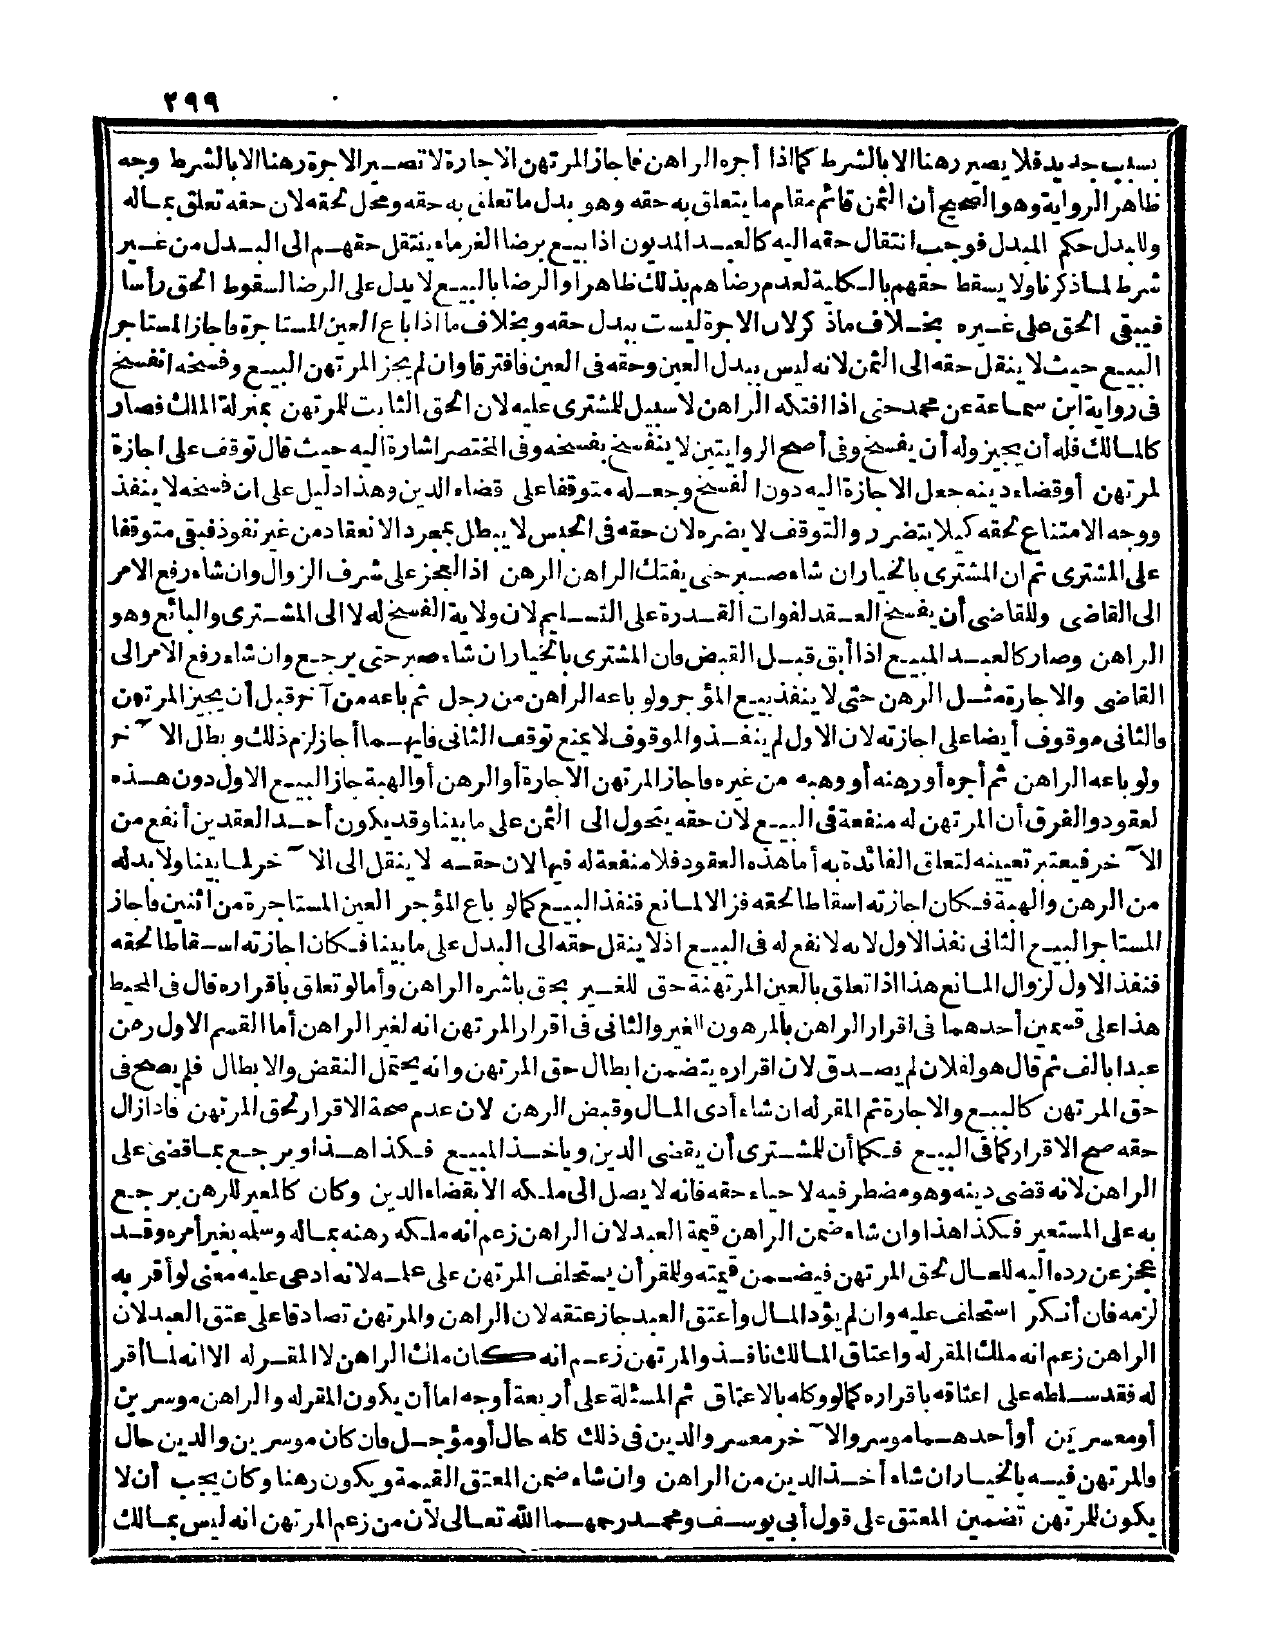 ٢٩٩
بسبب جديد فلا يصير رهنا الا بالشرط كما اذا أجره الراهن فاجاز المرتهن الاجارة لا تصير الاجرة رهنا الا بالشرط وجه
ظاهر الرواية وهو الصحيح أن الثمن قائم مقام ما يتعلق به حقه وهو بدل ما تعلق به حقه ومحل لحقه لان حقه تعلق بماله
وللبدل حكم المبدل فوجب انتقال حقه اليه كالعبد المديون اذا بيع برضا الغرماء ينتقل حقهم الى البدل من غير
شرط لما ذكرنا ولا يسقط حقهم بالكلية لعدم رضاهم بذلك ظاهرا والرضا بالبيع لا يدل على الرضا لسقوط الحق رأسا
فيبقى الحق على غيره بخلاف ما ذكر لان الاجرة ليست ببدل حقه وبخلاف ما اذا باع العين المستاجرة فاجاز المستاجر
البيع حيث لا ينقل حقه الى الثمن لانه ليس ببدل العين وحقه فى العين فافترقا وان لم يجز المرتهن البيع وفسخه انفسخ
فى رواية ابن سماعة عن محمد حتى اذا افتكه الراهن لا سبيل للمشترى عليه لان الحق الثابت للمرتهن بمنزلة الملك فصار
كالمالك فله أن يجيز وله أن يفسخ وفى أصح الروايتين لا ينفسخ بفسخه وفى المختصر اشارة اليه حيث قال توقف على اجازة
لمرتهن أو قضاء دينه جعل الاجازة اليه دون الفسخ وجعله متوقفا على قضاء الدين وهذا دليل على ان فسخه لا ينفذ
ووجه الامتناع لحقه كيلا يتضرر والتوقف لا يضره لان حقه فى الحبس لا يبطل بمجرد الانعقاد من غير نفوذ فبقى متوقفا
على المشترى ثم ان المشترى بالخيار ان شاء صبر حتى يفتك الراهن الرهن اذ العجز على شرف الزوال وان شاء رفع الامر
الى القاضى وللقاضى أن يفسخ العقد لفوات القدرة على التسليم لان ولاية الفسخ له لا الى المشترى والبائع وهو
الراهن وصار كالعبد المبيع اذا أبق قبل القبض فان المشترى بالخيار ان شاء صبر حتى يرجع وان شاء رفع الامر الى
القاضى والاجارة مثل الرهن حتى لا ينفذ بيع المؤجر ولو باعه الراهن من رجل ثم باعه من آخر قبل أن يجيز المرتهن
فالثانى موقوف أيضا على اجازته لان الاول لم ينفذ والموقوف لا يمنع توقف الثانى فايهما أجاز لزم ذلك وبطل الآخر
ولو باعه الراهن ثم أجره أو رهنه أو وهبه من غيره فاجاز المرتهن الاجارة أو الرهن أو الهبة جاز البيع الاول دون هذه
لعقود والفرق أن المرتهن له منفعة فى البيع لان حقه يتحول الى الثمن على ما بينا وقد يكون أحد العقدين أنفع من
الآخر فيعتبر تعيينه لتعلق الفائدة به أما هذه العقود فلا منفعة له فيها لان حقه لا ينقل الى الآخر لما بينا ولا بدله
من الرهن والهبة فكان اجازته اسقاطا لحقه فزال المانع فنفذ البيع كما لو باع المؤجر العين المستاجرة من اثنين فاجاز
المستاجر البيع الثانى نفذ الاول لانه لا نفع له فى البيع اذ لا ينقل حقه الى البدل على ما بينا فكان اجازته اسقاطا لحقه
فنفذ الاول لزوال المانع هذا اذا تعلق بالعين المرتهنة حق للغير بحق باشره الراهن وأما لو تعلق باقراره قال فى المحيط
هذا على قسمين أحدهما فى اقرار الراهن بالمرهون الغير والثانى فى اقرار المرتهن انه لغير الراهن أما القسم الاول رهن
عبدا بالف ثم قال هو لفلان لم يصدق لان اقراره يتضمن ابطال حق المرتهن وانه يحتمل النقض والابطال فلم يصح فى
حق المرتهن كالبيع والاجارة ثم المقر له ان شاء أدى المال وقبض الرهن لان عدم صحة الاقرار لحق المرتهن فاذا زال
حقه صح الاقرار كما فى البيع فكما أن للمشترى أن يقضى الدين وياخذ المبيع فكذا هذا ويرجع بما قضى على
الراهن لانه قضى دينه وهو مضطر فيه لاحياء حقه فانه لا يصل الى ملكه الا بقضاء الدين وكان كالمعير للرهن يرجع
به على المستعير فكذا هذا وان شاء ضمن الراهن قيمة العبد لان الراهن زعم انه ملكه رهنه بماله وسلمه بغير أمره وقد
عجز عن رده اليه للحال لحق المرتهن فيضمن قيمته وللمقر أن يستحلف المرتهن على علمه لانه ادعى عليه معنى لو أقر به
لزمه فان أنكر استحلف عليه وان لم يؤد المال وأعتق العبد جاز عتقه لان الراهن والمرتهن تصادقا على عتق العبد لان
الراهن زعم انه ملك المقر له واعتاق المالك نافذ والمرتهن زعم انه كان ملك الراهن لا المقر له الا انه لما أقر
له فقد سلطه على اعتاقه باقراره كما لو وكله بالاعتاق ثم المسئلة على أربعة أوجه اما أن يكون المقر له والراهن موسرين
أو معسرين أو أحدهما موسر والآخر معسر والدين فى ذلك كله حال أو مؤجل فان كان موسرين والدين حال
فالمرتهن فيه بالخيار ان شاء أخذ الدين من الراهن وان شاء ضمن المعتق القيمة ويكون رهنا وكان يجب أن لا
يكون للمرتهن تضمين المعتق على قول أبى يوسف ومحمد رحمهما الله تعالى لأن من زعم المرتهن انه ليس بمالك